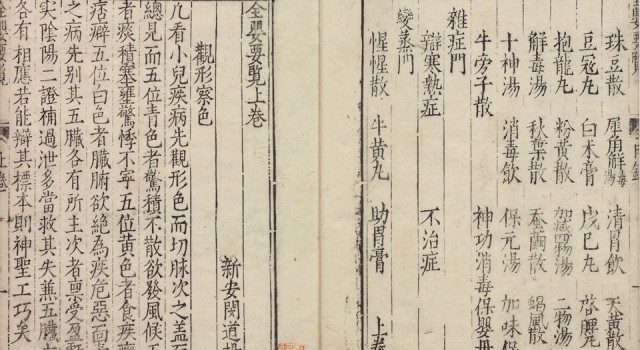 珠豆散 犀角解毒湯 清胃飲 天黃散
豆冠丸 白朮膏 戊巳丸 啓脾
抱龍丸 粉黄散 二物湯
解毒湯 秋葉散 蚕繭散 風散
十神湯 消毒飲 保元湯 加味保
牛旁子散 神功消毒保嬰
雜症門
辯寒熱症 不治症
變蒸門
惺惺散 牛黄丸 助胃膏 上卷
全嬰要覽上卷
新安閔道揚
觀形察色
凡看小兒疾病先觀形色而切脉次之盖
總見而五位青色者驚積不散欲發風候
者痰積塞壅驚悸不寧五位黄色者食
痞癖五位白色者臟腑欲絶為疾危惡而
之病先别其五臟各有所主次者禀受盈
实陰陽二證補過泄多當救其失兼五臟
各有相應若能辯其標本則神聖工巧矣
全嬰要覽